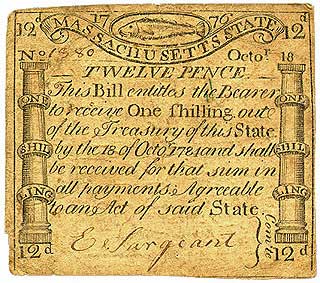 12d 17 76 12d
MASSACHUSETTS STATE
No 1380 Octor. 18
TWELVE PENCE.
This Bill entitles the Bearer
to receive One Shilling out
of the Treasury of this State
by the 18 of Octor. 1784 and shall
be received for that sum in
all payments Agreeable
to an Act of said State.
ONE ONE
SHIL SHIL
LING LING
E Sargeant
12d 12d